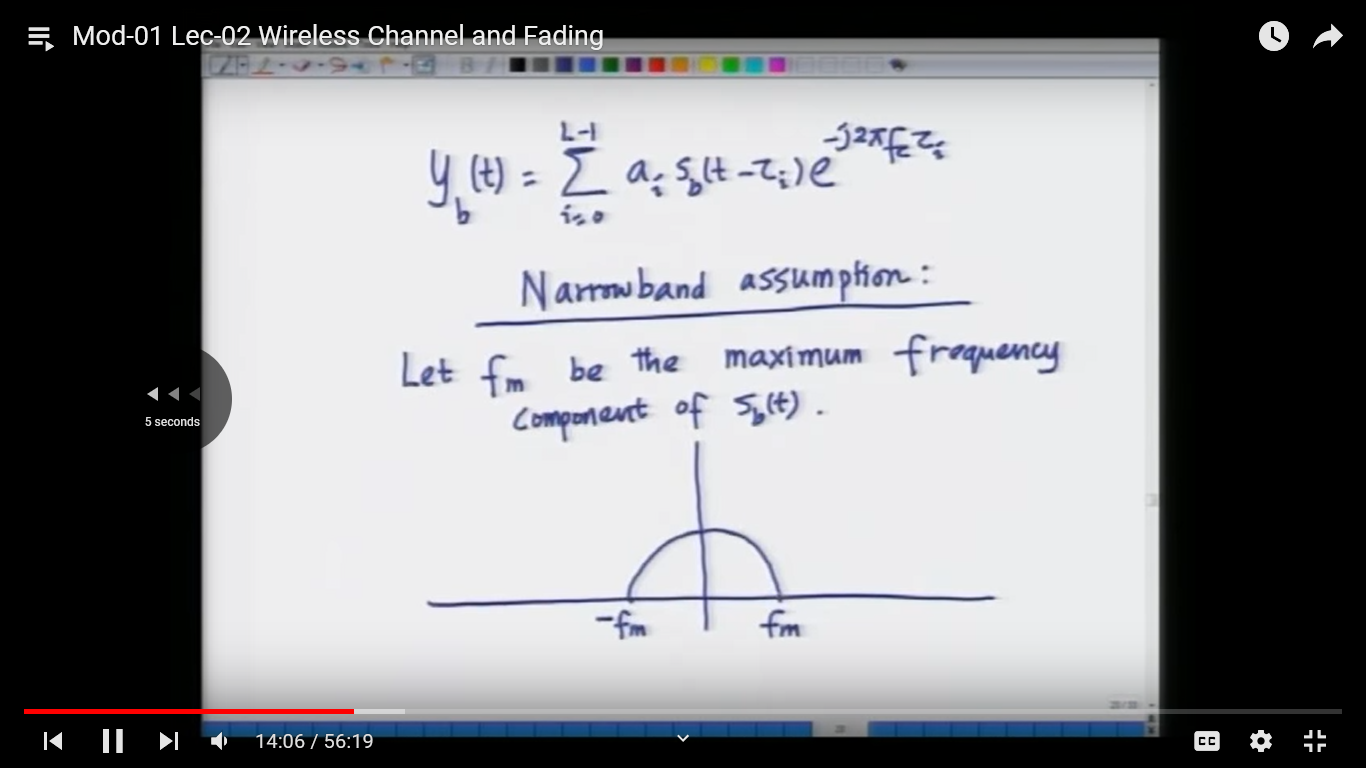 Mod-01 Lec-02 Wireless Channel and Fading
y_b(t) = Σ_{i=0}^{L-1} a_i s_b(t-τ_i) e^{-j2πf_cτ_i}
Narrowband assumption:
Let f_m be the maximum frequency
component of s_b(t).
5 seconds
-f_m f_m
14:06 / 56:19
CC